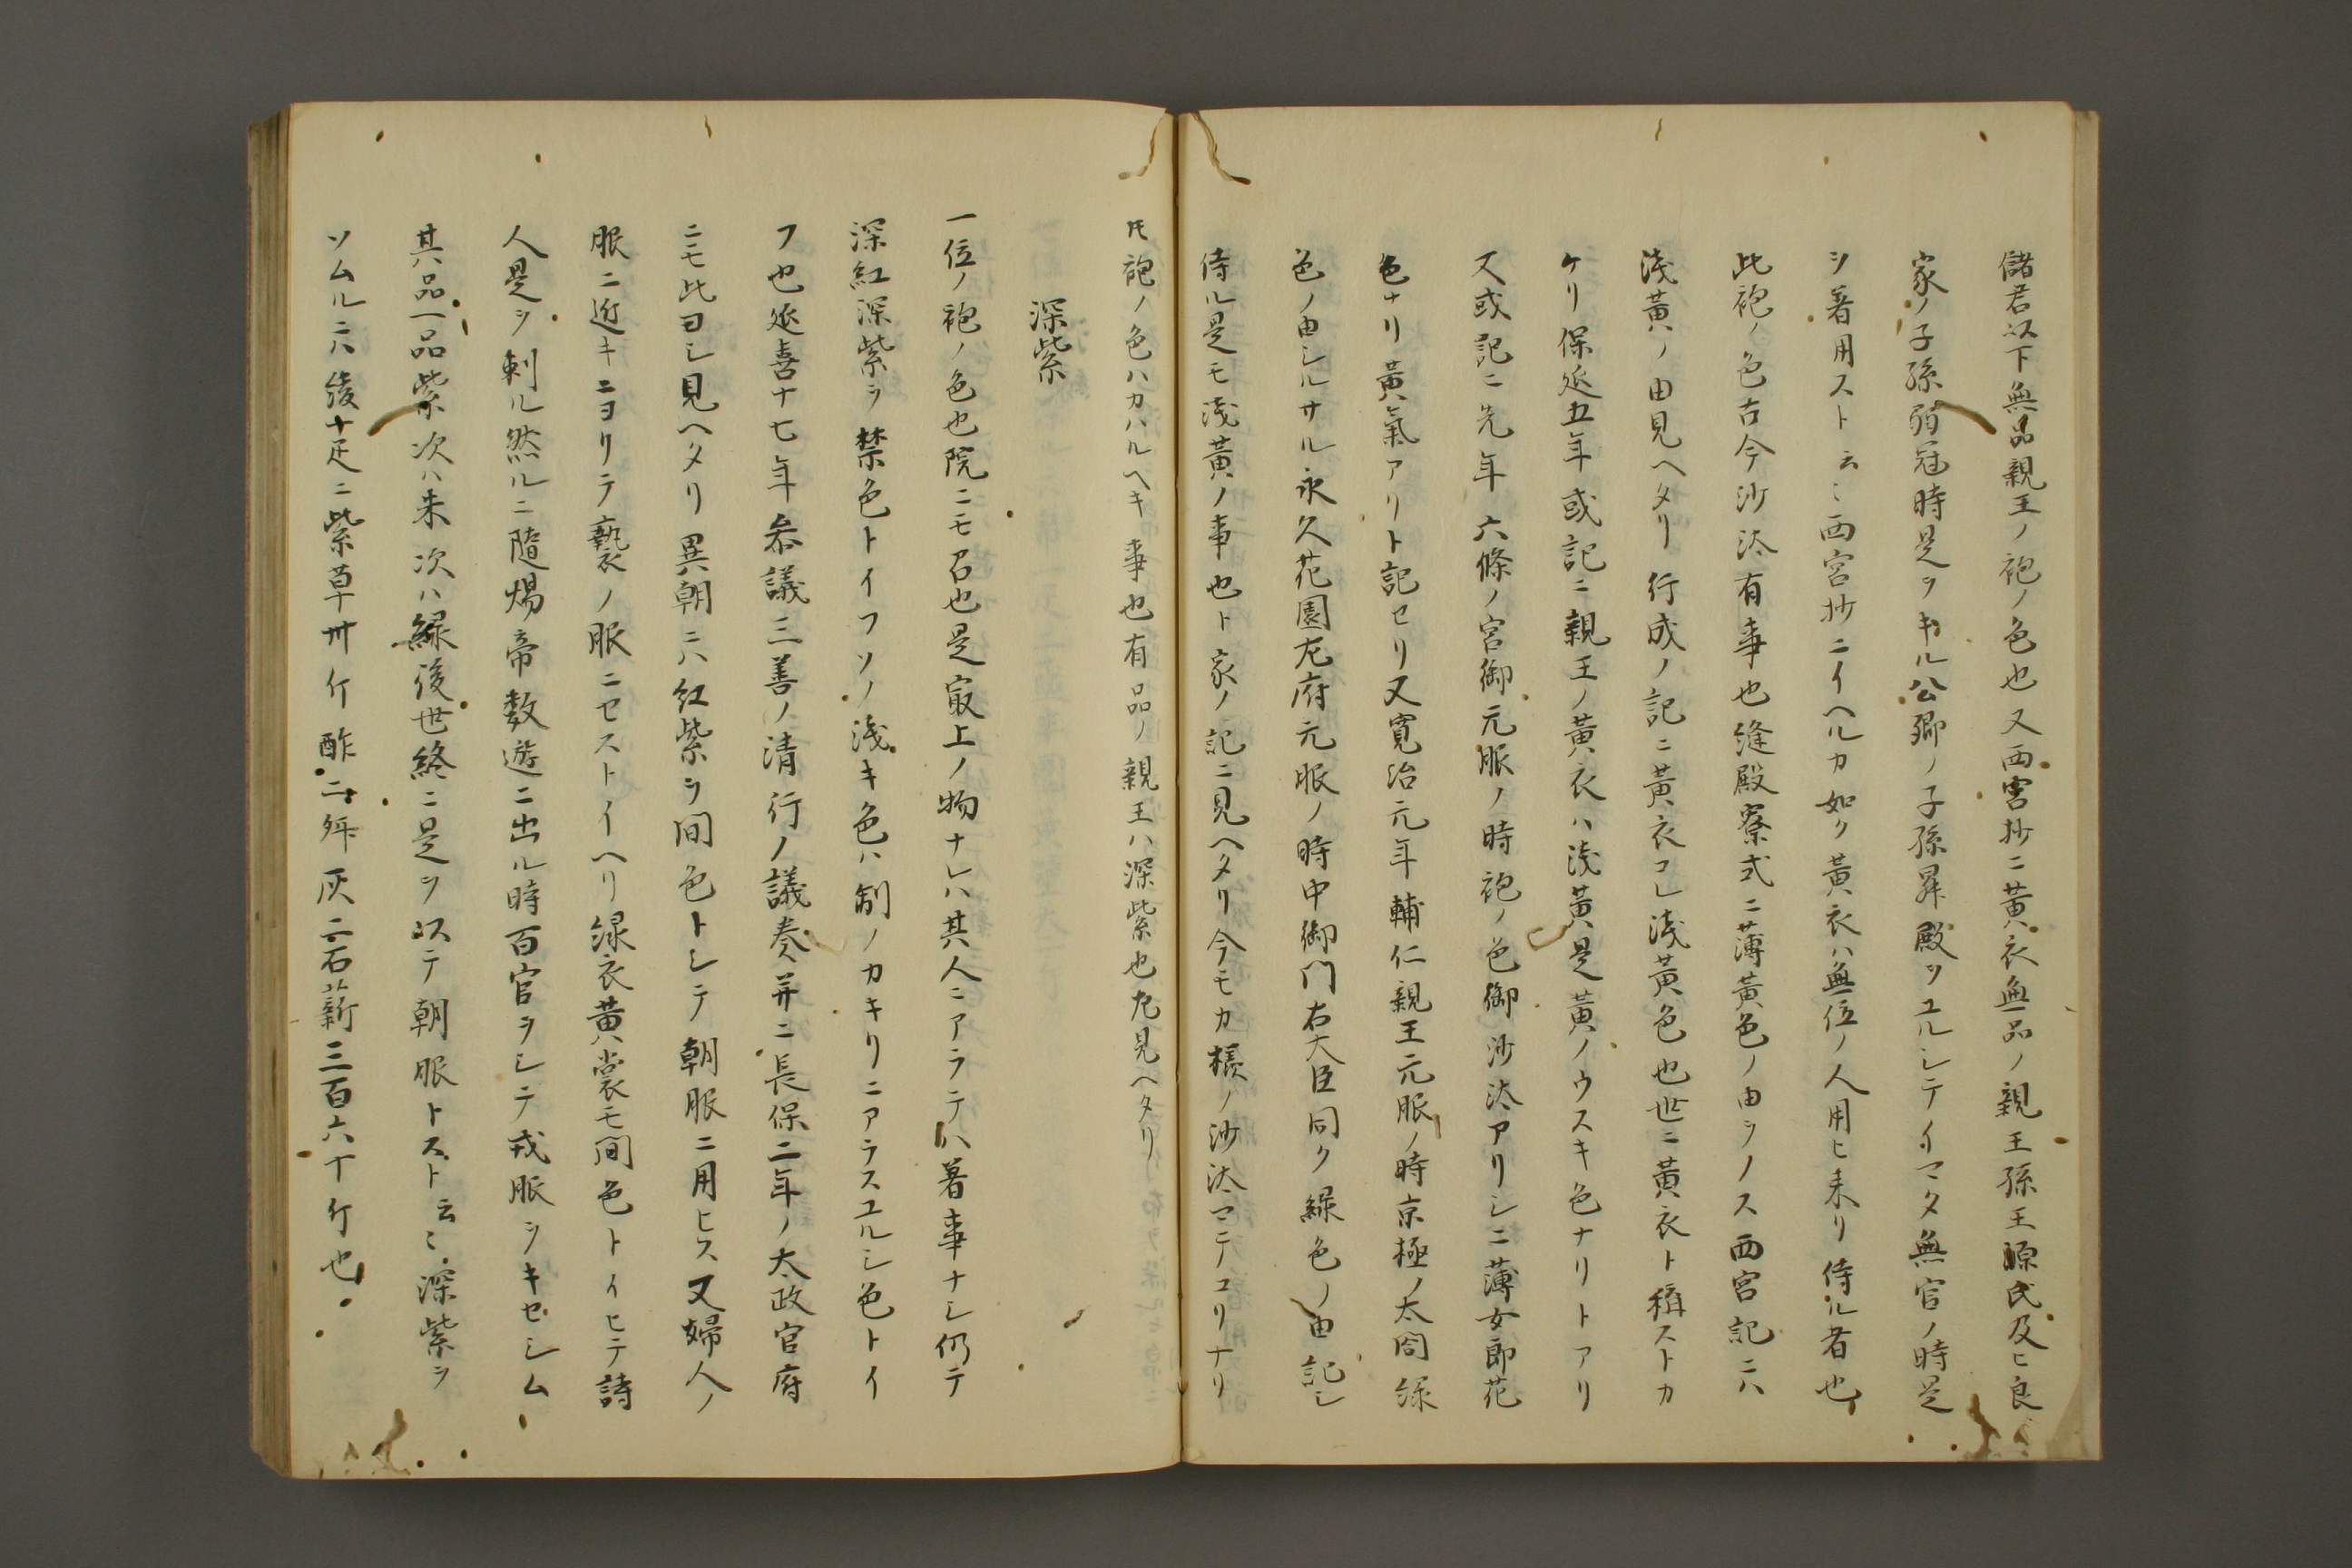 儲君以下無品親王ノ袍ノ色也又西宮抄ニ黄衣無品ノ親王孫王源氏及ヒ良
家ノ子孫弱冠時是ヲキル公卿ノ子孫昇殿ヲユルシテイマタ無官ノ時是
ヲ著用スト云〻西宮抄ニイヘルカ如ク黄衣ハ無位ノ人用ヒ来リ侍ル者也
此袍ノ色古今沙汰有事也縫殿寮式ニ薄黄色ノ由ヲノス西宮記ニハ
浅黄ノ由見ヘタリ行成ノ記ニ黄衣コレ浅黄色也世ニ黄衣ト稱ストカ
ケリ保延五年或記ニ親王ノ黄衣ハ浅黄是黄ノウスキ色ナリトアリ
又或記ニ先年六條ノ宮御元服ノ時袍ノ色御沙汰アリシニ薄女郎花
色ナリ黄氣アリト記セリ又寛治元年輔仁親王元服ノ時京極ノ太閤緑
色ノ由シルサル永久花園左府元服ノ時中御門右大臣同ク緑色ノ由記シ
侍ル是モ浅黄ノ事也ト家ノ記ニ見ヘタリ今モカ様ノ沙汰マテユリナリ
圧袍ノ色ハカハルヘキ事也有品ノ親王ハ深紫也尤見ヘタリ
深紫
一位ノ袍ノ色也院ニモ召也是冣上ノ物ナレハ其人ニアラテハ著事ナシ仍テ
深紅深紫ヲ禁色トイフソノ浅キ色ハ制ノカキリニアラスユルシ色トイ
フ也延喜十七年参議三善ノ清行ノ議奏并ニ長保二年ノ太政官府
ニモ此ヨシ見ヘタリ異朝ニハ紅紫ヲ間色トシテ朝服ニ用ヒス又婦人ノ
服ニ近キニヨリテ褻ノ服ニセストイヘリ緑衣黄裳モ間色トイヒテ詩
人是ヲ刺ル然ルニ隨煬帝數遊ニ出ル時百官ヲシテ戎服ヲキセシム
其品一品紫次ハ朱次ハ緑後世終ニ是ヲ以テ朝服トスト云〻深紫ヲ
ソムルニハ綾十疋ニ紫草卅斤酢二升灰二石薪三百六十斤也